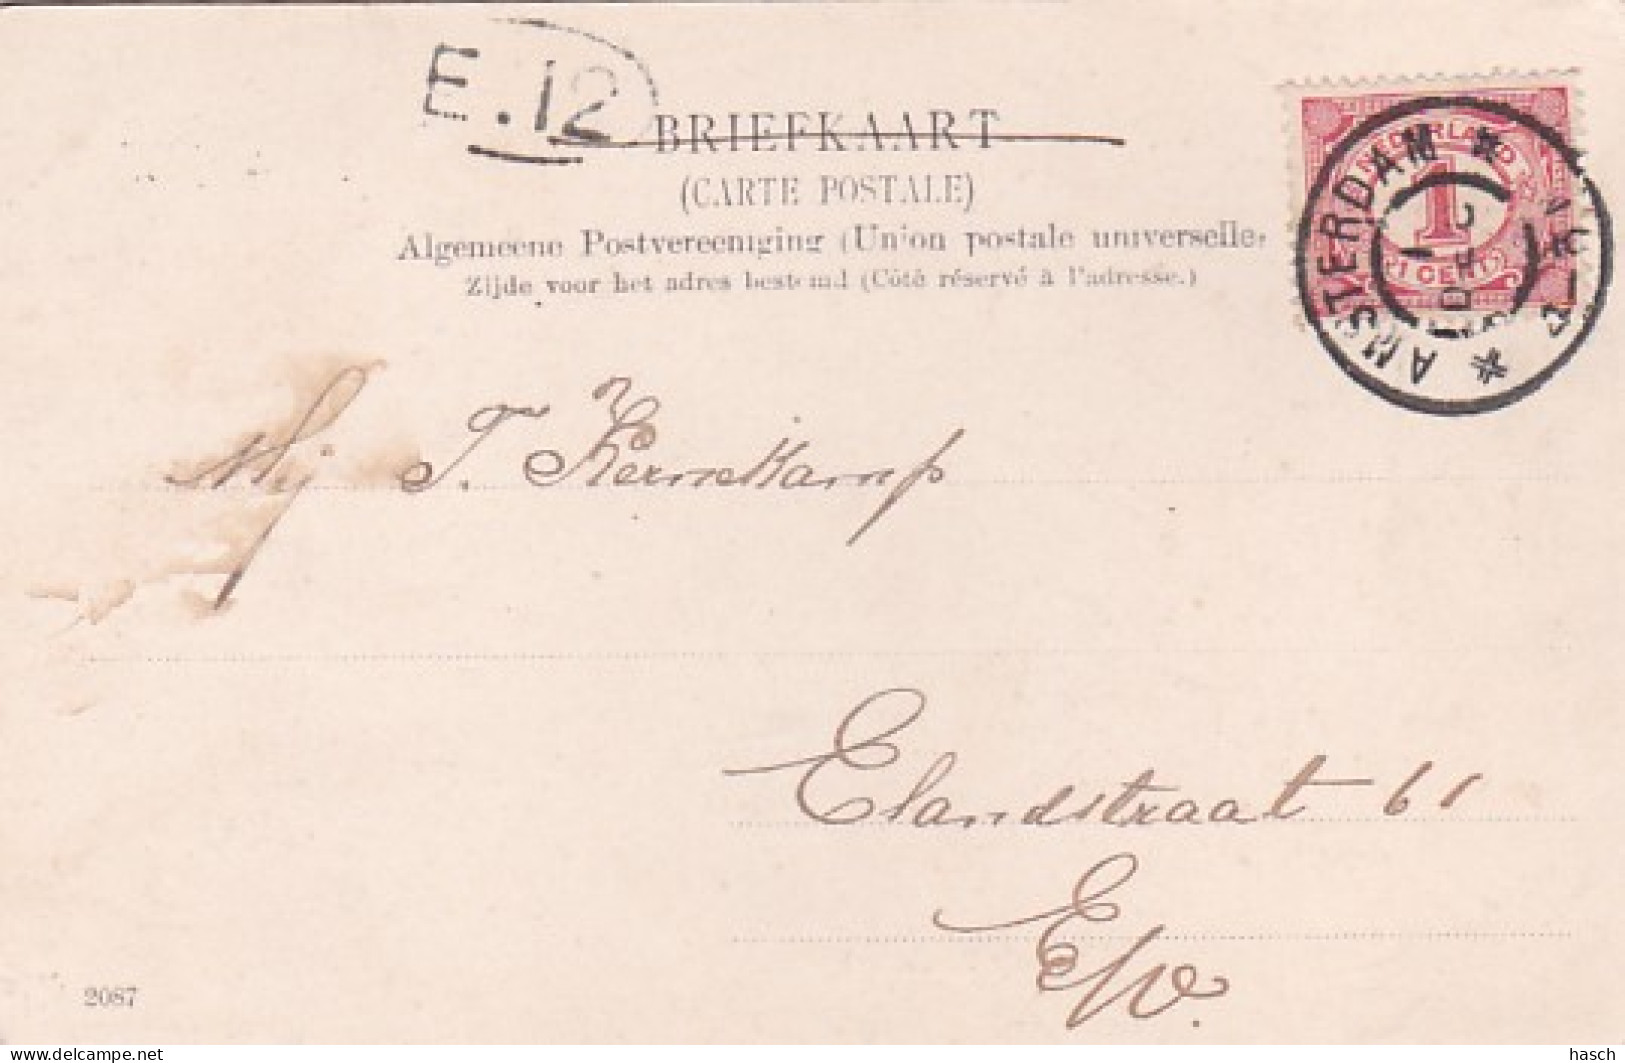 E. 12
BRIEFKAART
(CARTE POSTALE)
Algemeene Postvereeniging (Union postale universelle)
Zijde voor het adres bestemd (Côté réservé à l'adresse.)
NEDERLAND
1
1 CENT
AMSTERDAM
T. Kernekamp
Elandstraat 61
2087
hasch
delcampe.net